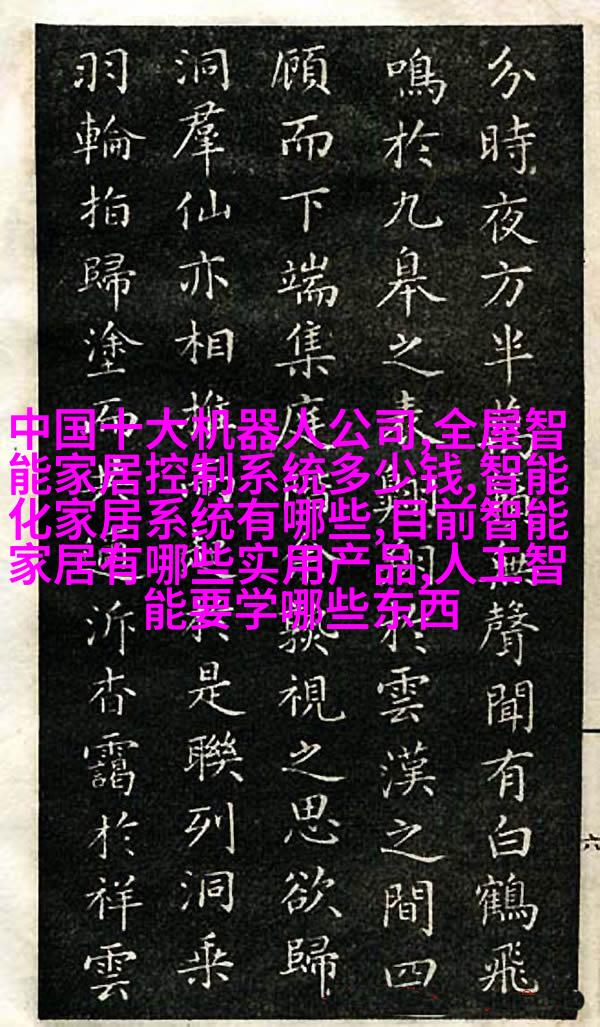 中国十大机器人公司,全屋智
能家居控制系统多少钱,智能
化家居系统有哪些,目前智能
家居有哪些实用产品,人工智
能要学哪些东西
分時夜方半萬無聲聞有白鶴飛
鳴於九皋之表翔於雲漢之間四
顧而下端集庭視之思欲歸
洞羣仙亦相於是聯列洞乗
羽輪拍歸塗而泝杳靄於祥雲
六